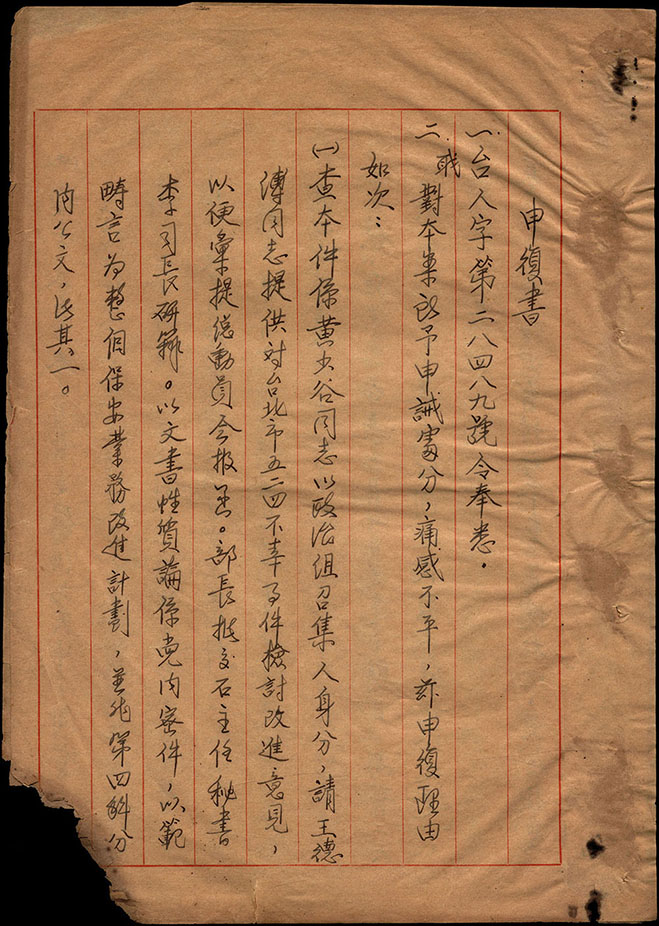 申復書
一、台人字第二八四八九號令奉悉。
二、職對本案所予申誡處分，痛感不平，茲申復理由
如次：
(一)查本件係黃少谷同志以政治組召集人身分，請王德
溥同志提供對台北市五二四不幸事件檢討改進意見，
以便彙提總動員會報。部長批交石主任秘書
李司長研辦。以文書性質論係党內密件，以範
疇言為整個保安業務改進計劃，並非第四科分
內公文，此其一。